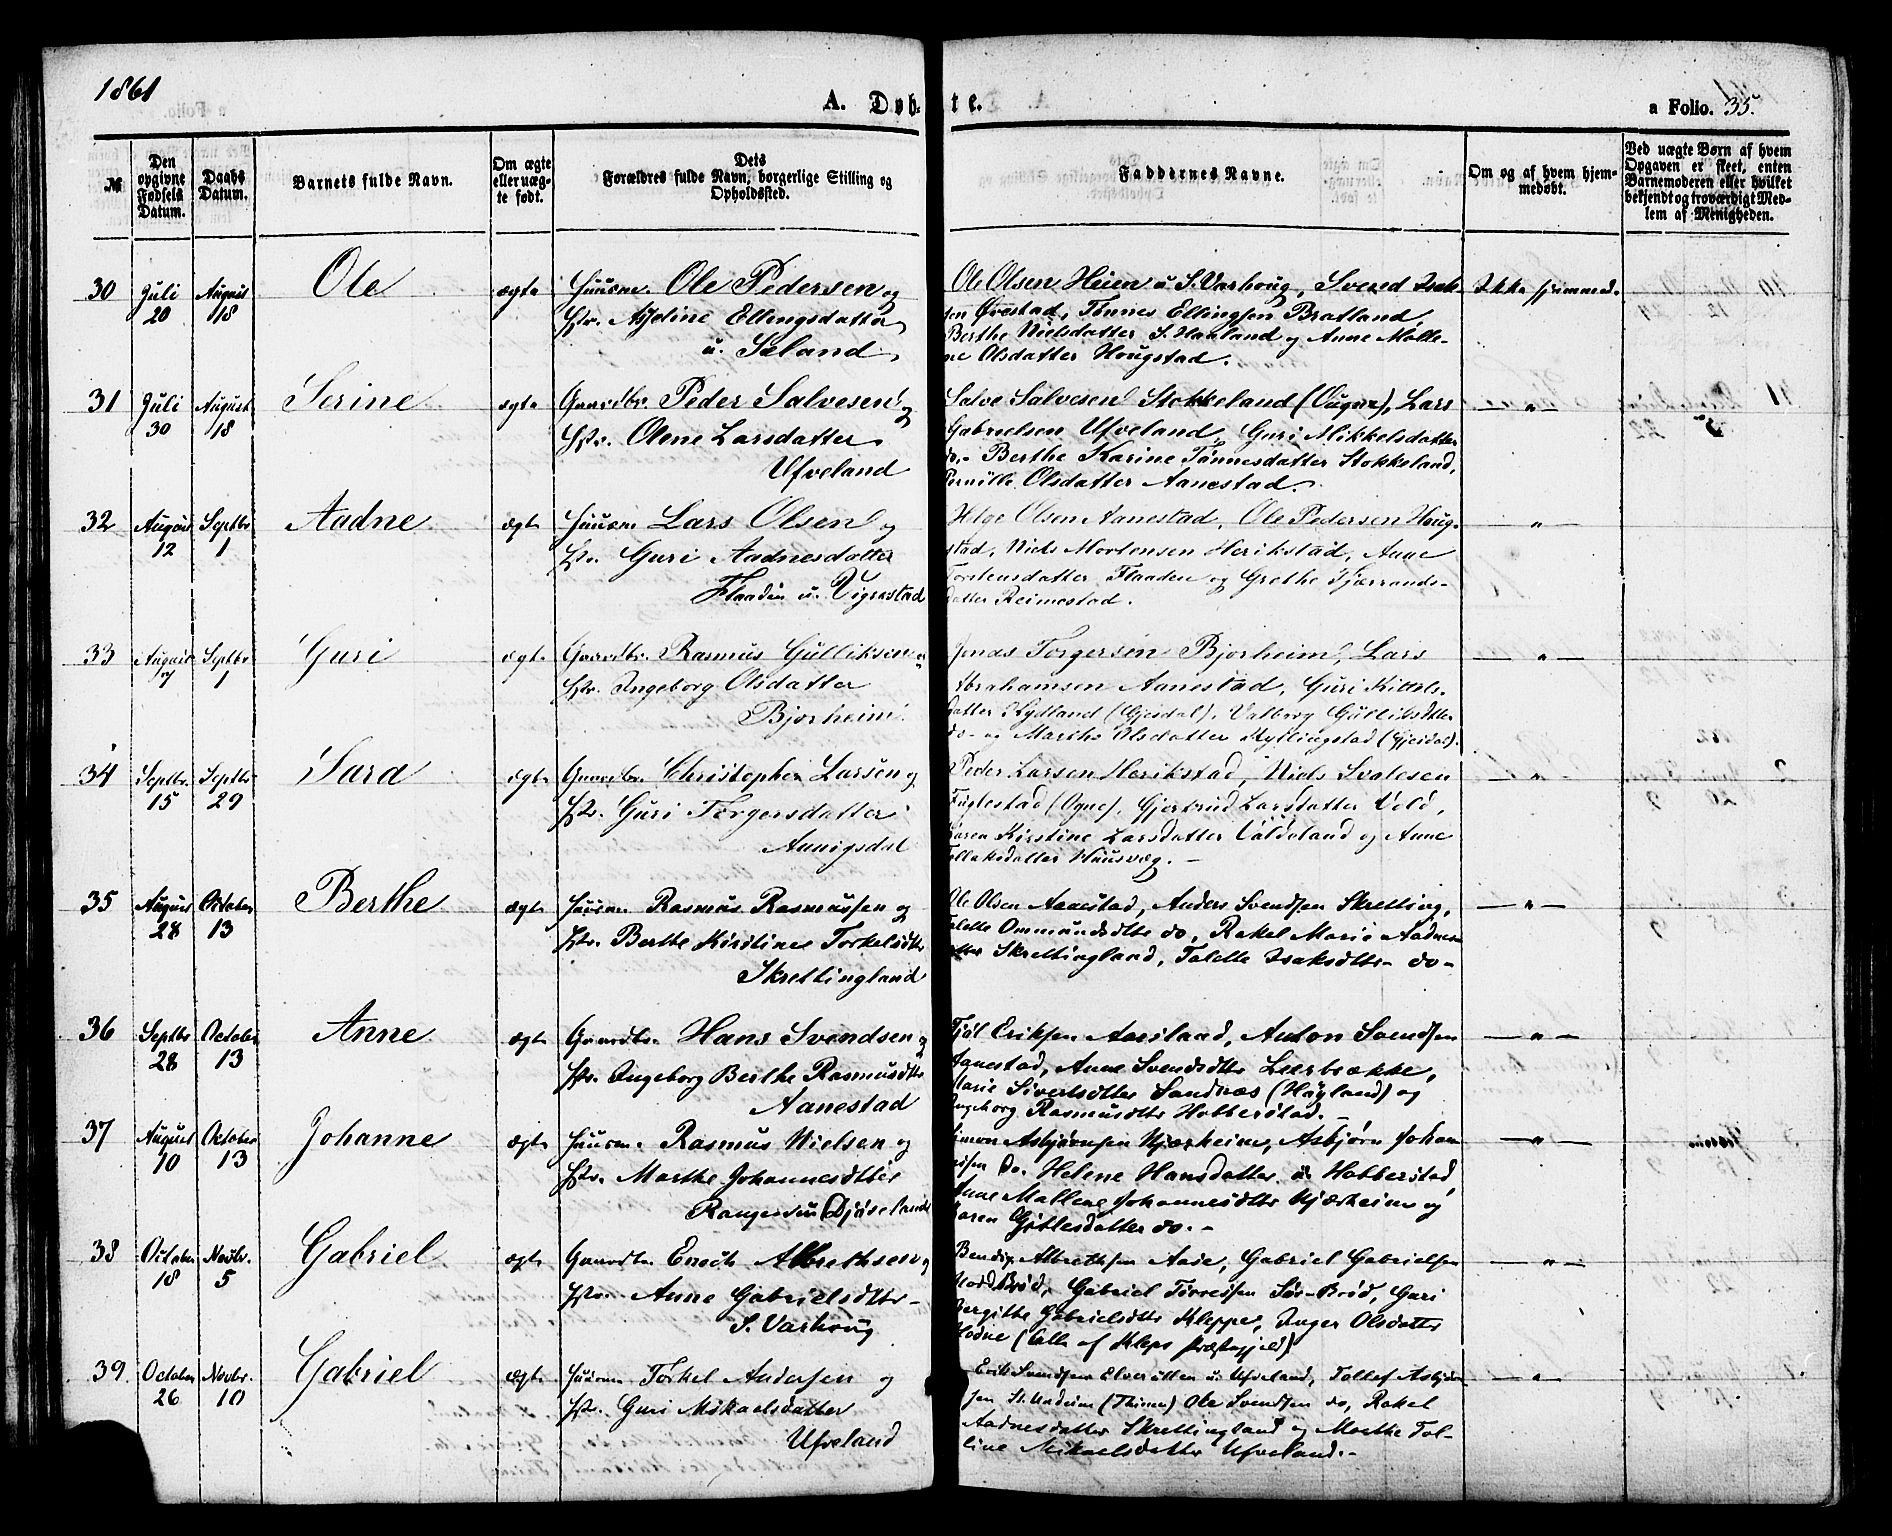 1861
A. Døb-
te.
a Folio. 35.
№
Den opgivne Fødsels Datum.
Daabs Datum.
Barnets fulde Navn.
Om ægte eller uæg- te født.
Dets Forældres fulde Navn, borgerlige Stilling og Opholdssted.
Faddernes Navne.
Om og af hvem hjem- medøbt.
Ved uægte Børn af hvem Opgaven er skeet, enten Barnemoderen eller hvilket bekjendt og troværdigt Med- lem af Menigheden.
30 Juli 20 August 18 Ole ægte
Huusm. Ole Pedersen og
Hst. Asseline Ellingsdatter
u. Sæland
Ole Olsen Heien u S. Varhoug, Svend Isak-
sen Ørestad, Tønnes Ellingsen Bratland,
Berthe Nielsdatter S. Haaland og Anne Malle-
ne Olsdatter Hougstad.
Ikke hjemmed.
31 Juli 30 August 18 Serine ægte
Gaardbr. Peder Salvesen og
Hst. Olene Larsdatter
Ufveland
Salve Salvesen Stokkeland (Ougne), Lars
Gabrielsen Ufveland, Guri Mikkelsdatter
do - Berthe Karine Tønnesdatter Stokkeland,
Pernille Olsdatter Aanestad.
— " —
32 August 12 Septbr 1 Aadne ægte
Huusm Lars Olsen og
Hst. Guri Aadnesdatter
Flaaden u. Vigrestad
Helge Olsen Aanestad, Ole Pedersen Houg-
stad, Niels Mortensen Herikstad, Anne
Torstensdatter Flaaden og Grethe Tjærrands-
datter Reimestad.
— " —
33 August Septbr 1 Guri ægte
Gaardbr. Rasmus Gulliksen og
Hst. Ingeborg Olsdatter
Bjorheim
Jonas Torgersen Bjorheim, Lars
Abrahamsen Aanestad, Guri Kittels-
datter Kydland (Gjesdal), Valborg Gulliksdtter
do - og Marthe Olsdatter Kyllingstad (Gjesdal).
— " —
34 Septbr. 15 Septbr 29 Sara ægte
Gaardbr. Christopher Larsen og
Hst. Guri Torgersdatter
Aunigsdal
Peder Larsen Herikstad, Niels Svalesen
Fuglestad (Ogne), Gjertrud Larsdatter Vold,
Karen Kirstine Larsdatter Udland og Anne
Tollaksdatter Husvæg. -
— " —
35 August 28 October 13 Berthe ægte
Huusm Rasmus Rasmussen og
Hst. Berthe Kirstine Torkelsdtter
Skrettingland
Ole Olsen Aanestad, Anders Svendsen Skretting,
Talette Ommundsdtter do, Rakel Marie Aadnes-
datter Skrettingland, Talette Isaksdtter - do -
— " —
36 Septbr 28 October 13 Anne ægte
Gaardbr. Hans Svendsen og
Hst. Ingeborg Berthe Rasmusdtter
Aanestad
Fjøl Eriksen Aarsland, Anton Svendsen
Aanestad, Anne Svendsdtter Leerbrække,
Marie Sivertsdtter Sandnæs (Høyland) og
Ingeborg Rasmusdtter Hobberstad. -
— " —
37 August 10 October 13 Johanne ægte
Huusm. Rasmus Nielsen og
Hst. Marthe Johannesdtter
Simon Asbjørnsen Njærheim, Asbjørn Johan-
nesen do. Helene Hansdatter u Hobberstad
Anne Mallene Johannesdtter Njærheim og
Karen Gitlesdatter do. -
— " —
38 October 18 Novbr. 5 Gabriel ægte
Gaardbr. Enoch Albrethsen og
Hst. Anne Gabrielsdtter -
S. Varhoug
Bendix Albrethsen Aade, Gabriel Gabrielsen
Nord Brød, Gabriel Torressen Sør-Brød, Guri
Bergitte Gabrielsdtter Kleppe, Inger Olsdatter
Hodne (Alle af Kleps Præstegjeld)
— " —
39 October 26 Novbr. 10 Gabriel ægte
Huusm Torkel Andersen og
Hst. Guri Mikaelsdatter
Ufveland
Erik Svendsen Elveratten u. Ufveland, Tollef Asbjørn-
sen St. Undeim (Thime) Ole Svendsen do, Rakel
Aadnesdatter Skrettingland og Marthe Tol-
line Mikaelsdatter Ufveland. -
— " —